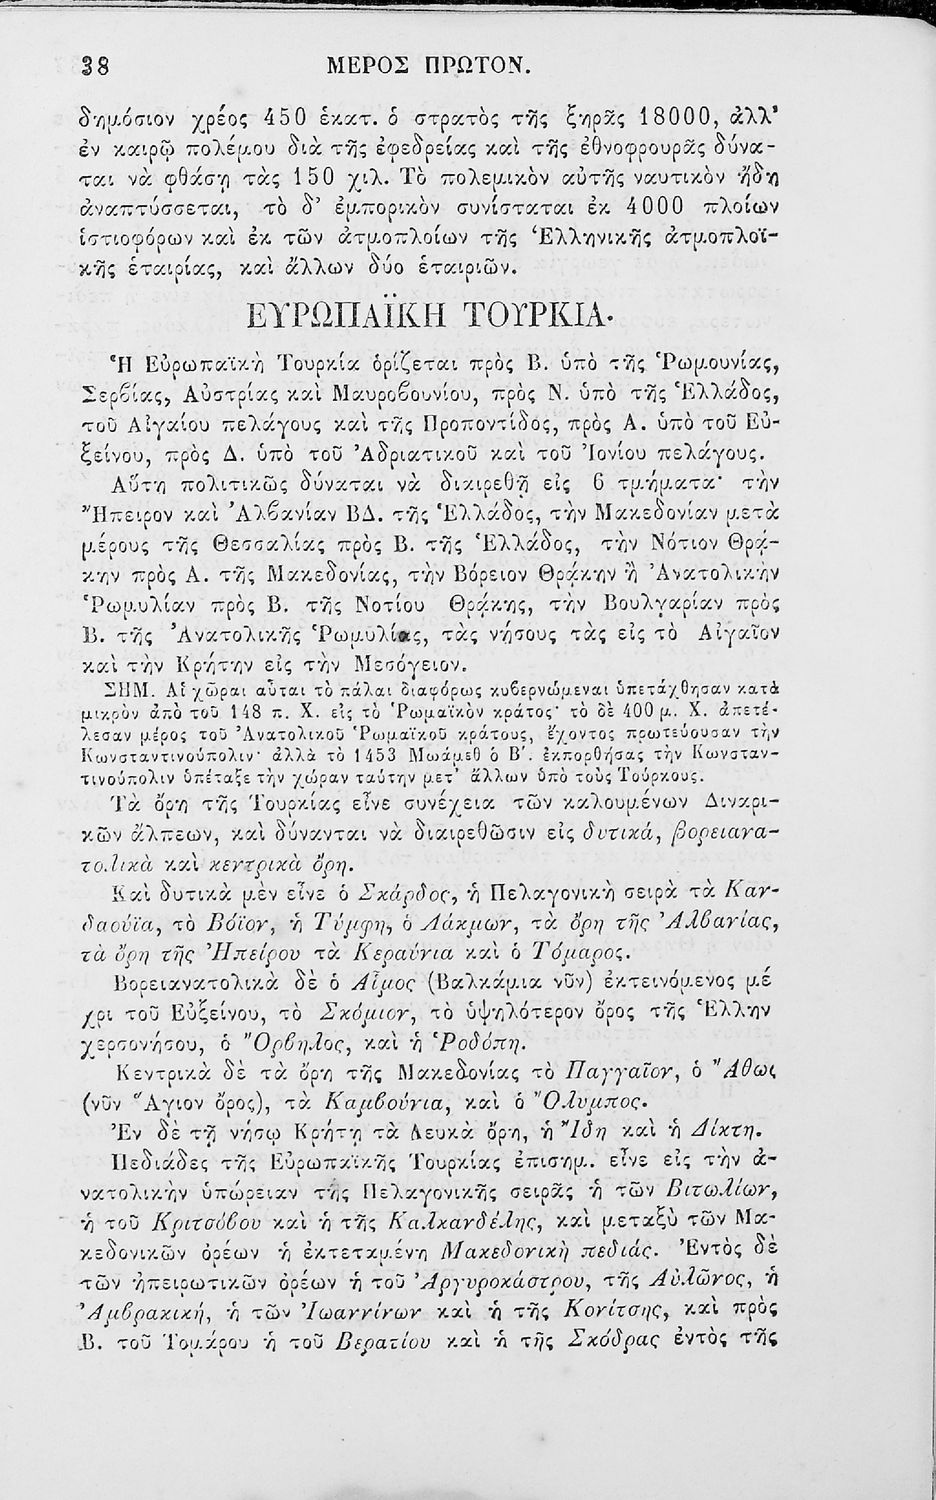 38 ΜΕΡΟΣ ΠΡΩΤΟΝ.
δημόσιον χρέος 450 ἑκατ. ὁ στρατὸς τῆς ξηρᾶς 18000, ἀλλ'
ἐν καιρῷ πολέμου διὰ τῆς ἐφεδρείας καὶ τῆς ἐθνοφρουρᾶς δύνα-
ται νὰ φθάσῃ τὰς 150 χιλ. Τὸ πολεμικὸν αὐτῆς ναυτικὸν ἤδη
ἀναπτύσσεται, τὸ δ' ἐμπορικὸν συνίσταται ἐκ 4000 πλοίων
ἱστιοφόρων καὶ ἐκ τῶν ἀτμοπλοίων τῆς Ἑλληνικῆς ἀτμοπλοϊ-
κῆς ἑταιρίας, καὶ ἄλλων δύο ἑταιριῶν.
ΕΥΡΩΠΑΪΚΗ ΤΟΥΡΚΙΑ.
Ἡ Εὐρωπαϊκὴ Τουρκία ὁρίζεται πρὸς Β. ὑπὸ τῆς Ῥωμουνίας,
Σερβίας, Αὐστρίας καὶ Μαυροβουνίου, πρὸς Ν. ὑπὸ τῆς Ἑλλάδος,
τοῦ Αἰγαίου πελάγους καὶ τῆς Προποντίδος, πρὸς Α. ὑπὸ τοῦ Εὐ-
ξείνου, πρὸς Δ. ὑπὸ τοῦ Ἀδριατικοῦ καὶ τοῦ Ἰονίου πελάγους.
Αὕτη πολιτικῶς δύναται νὰ διαιρεθῇ εἰς 6 τμήματα· τὴν
Ἤπειρον καὶ Ἀλβανίαν ΒΔ. τῆς Ἑλλάδος, τὴν Μακεδονίαν μετὰ
μέρους τῆς Θεσσαλίας πρὸς Β. τῆς Ἑλλάδος, τὴν Νότιον Θρᾴ-
κην πρὸς Α. τῆς Μακεδονίας, τὴν Βόρειον Θρᾴκην ἢ Ἀνατολικὴν
Ῥωμυλίαν πρὸς Β. τῆς Νοτίου Θρᾴκης, τὴν Βουλγαρίαν πρὸς
Β. τῆς Ἀνατολικῆς Ῥωμυλίας, τὰς νήσους τὰς εἰς τὸ Αἰγαῖον
καὶ τὴν Κρήτην εἰς τὴν Μεσόγειον.
ΣΗΜ. Αἱ χῶραι αὗται τὸ πάλαι διαφόρως κυβερνώμεναι ὑπετάχθησαν κατὰ
μικρὸν ἀπὸ τοῦ 148 π. Χ. εἰς τὸ Ῥωμαϊκὸν κράτος· τὸ δὲ 400 μ. Χ. ἀπετέ-
λεσαν μέρος τοῦ Ἀνατολικοῦ Ῥωμαϊκοῦ κράτους, ἔχοντος πρωτεύουσαν τὴν
Κωνσταντινούπολιν· ἀλλὰ τὸ 1453 Μωάμεθ ὁ Β΄. ἐκπορθήσας τὴν Κωνσταν-
τινούπολιν ὑπέταξε τὴν χώραν ταύτην μετ' ἄλλων ὑπὸ τοὺς Τούρκους.
Τὰ ὄρη τῆς Τουρκίας εἶνε συνέχεια τῶν καλουμένων Διναρι-
κῶν ἄλπεων, καὶ δύνανται νὰ διαιρεθῶσιν εἰς δυτικά, βορειανα-
τολικὰ καὶ κεντρικὰ ὄρη.
Καὶ δυτικὰ μὲν εἶνε ὁ Σκάρδος, ἡ Πελαγονικὴ σειρὰ τὰ Καν-
δαούϊα, τὸ Βόϊον, ἡ Τύμφη, ὁ Λάκμων, τὰ ὄρη τῆς Ἀλβανίας,
τὰ ὄρη τῆς Ἠπείρου τὰ Κεραύνια καὶ ὁ Τόμαρος.
Βορειανατολικὰ δὲ ὁ Αἷμος (Βαλκάμια νῦν) ἐκτεινόμενος μέ
χρι τοῦ Εὐξείνου, τὸ Σκόμιον, τὸ ὑψηλότερον ὄρος τῆς Ἑλλην
χερσονήσου, ὁ Ὄρβηλος, καὶ ἡ Ῥοδόπη.
Κεντρικὰ δὲ τὰ ὄρη τῆς Μακεδονίας τὸ Παγγαῖον, ὁ Ἄθως
(νῦν Ἅγιον ὄρος), τὰ Καμβούνια, καὶ ὁ Ὄλυμπος.
Ἐν δὲ τῇ νήσῳ Κρήτῃ τὰ Λευκὰ ὄρη, ἡ Ἴδη καὶ ἡ Δίκτη.
Πεδιάδες τῆς Εὐρωπαϊκῆς Τουρκίας ἐπισημ. εἶνε εἰς τὴν ἀ-
νατολικὴν ὑπώρειαν τῆς Πελαγονικῆς σειρᾶς ἡ τῶν Βιτωλίων,
ἡ τοῦ Κριτσόβου καὶ ἡ τῆς Καλκανδέλης, καὶ μεταξὺ τῶν Μα-
κεδονικῶν ὀρέων ἡ ἐκτεταμένη Μακεδονικὴ πεδιάς. Ἐντὸς δὲ
τῶν ἠπειρωτικῶν ὀρέων ἡ τοῦ Ἀργυροκάστρου, τῆς Αὐλῶνος, ἡ
Ἀμβρακική, ἡ τῶν Ἰωαννίνων καὶ ἡ τῆς Κονίτσης, καὶ πρὸς
Β. τοῦ Τομάρου ἡ τοῦ Βερατίου καὶ ἡ τῆς Σκόδρας ἐντὸς τῆς